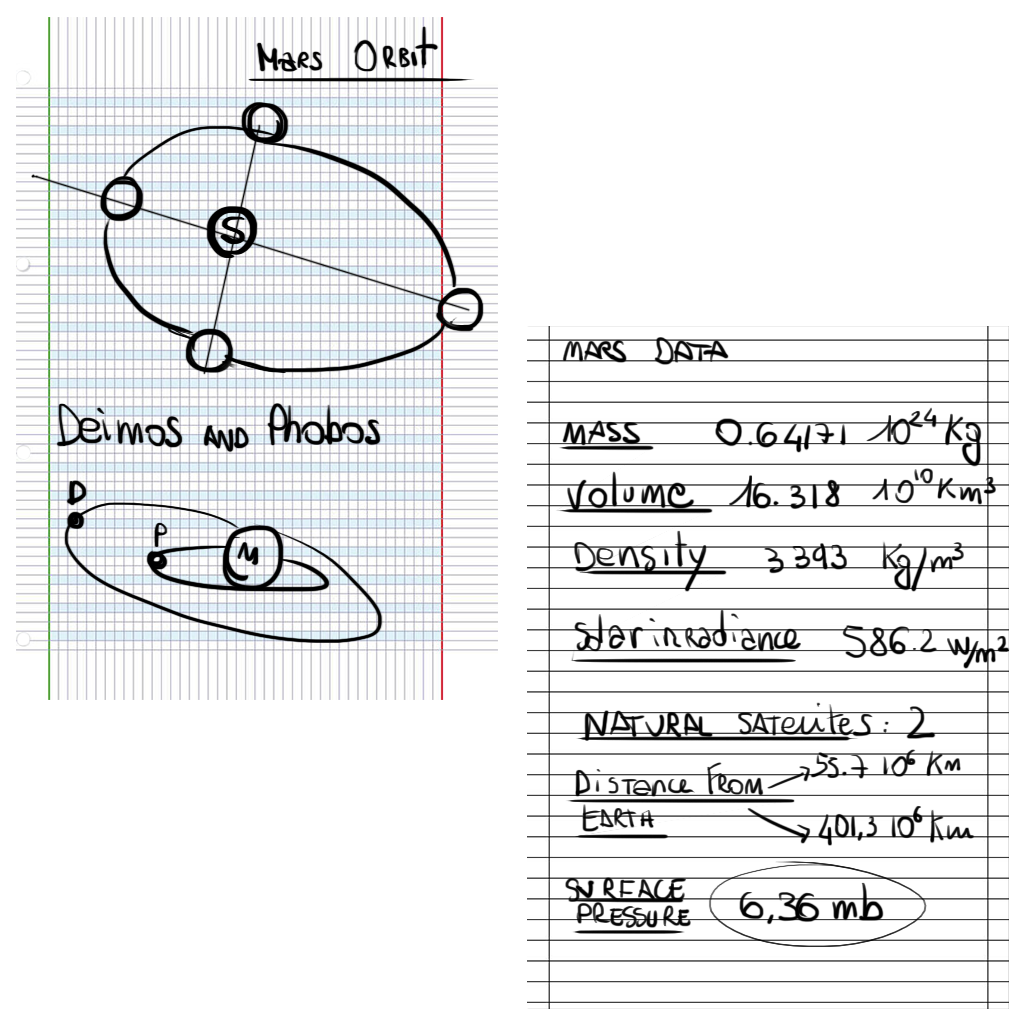 MARS ORBIT
S
Deimos AND Phobos
D
P
M
MARS DATA
MASS 0.64171 10²⁴ Kg
Volume 16.318 10¹⁰ Km³
Density 3393 Kg/m³
Solar irradiance 586.2 W/m²
NATURAL SATELLITES: 2
Distance From → 55.7 10⁶ Km
EARTH → 401,3 10⁶ Km
SURFACE
PRESSURE 6,36 mb